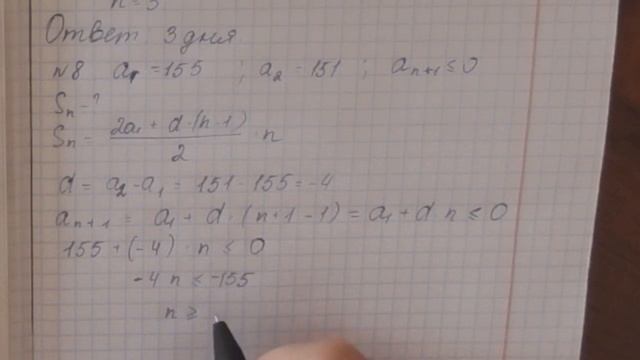 n = 3
Ответ 3 дня
№8 a₁ = 155 ; a₂ = 151 ; aₙ₊₁ ≤ 0
Sₙ = ?
Sₙ = (2a₁ + d·(n-1))/2 · n
d = a₂ - a₁ = 151 - 155 = -4
aₙ₊₁ = a₁ + d · (n+1-1) = a₁ + d · n ≤ 0
155 + (-4) · n ≤ 0
-4 n ≤ -155
n ≥